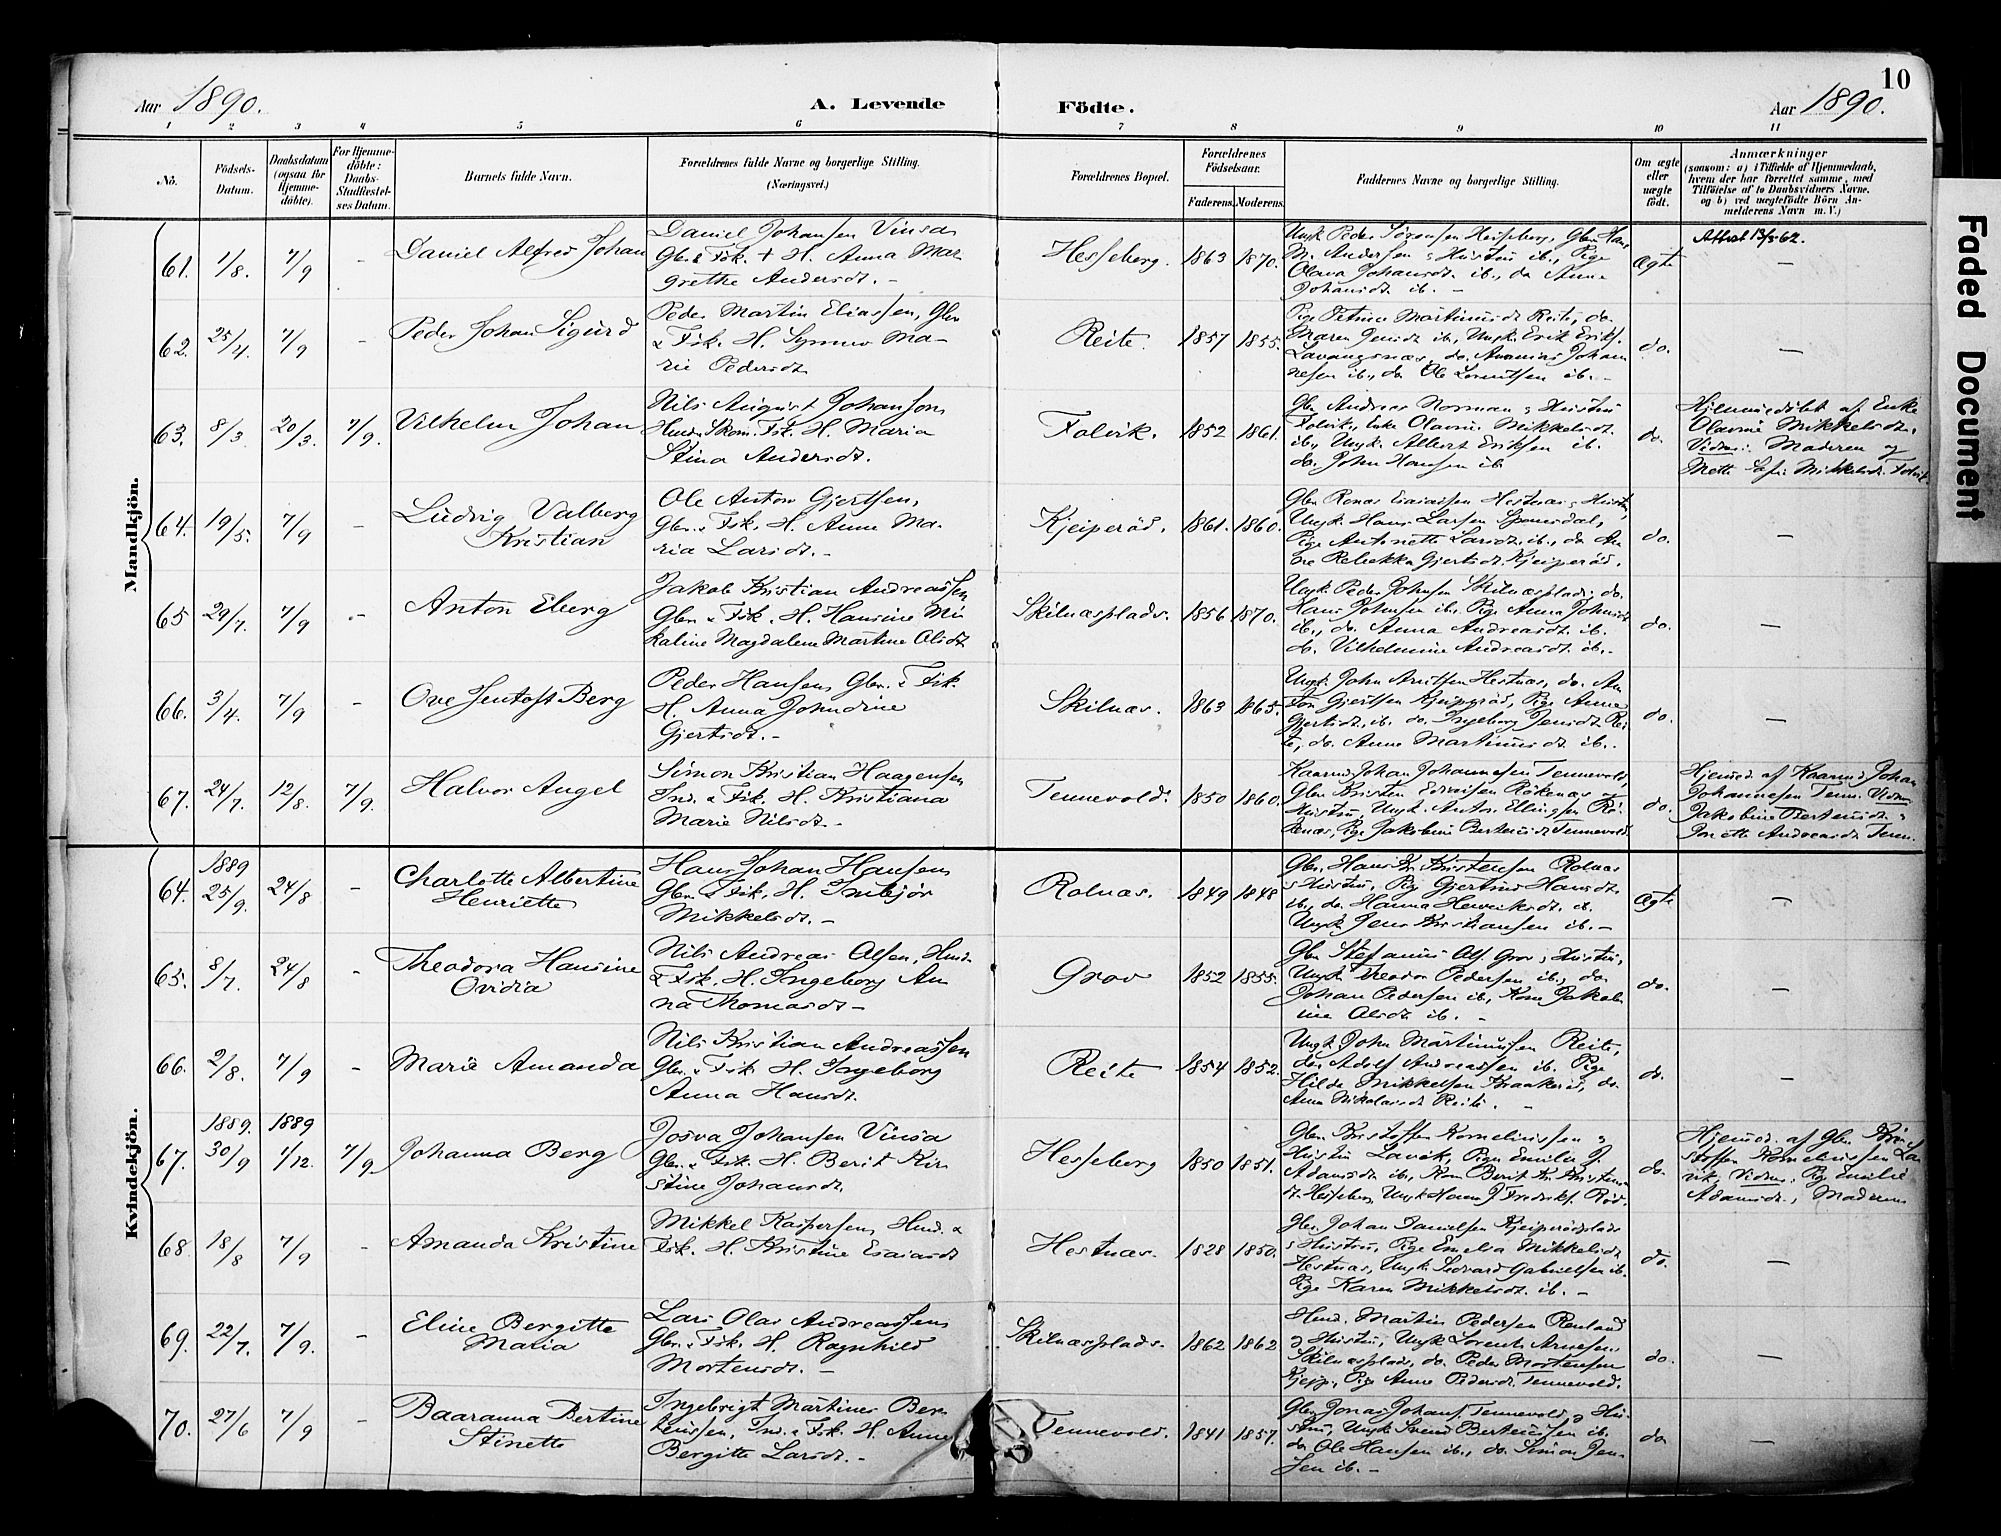 10
Aar 1890.
A. Levende Födte.
Aar 1890.
1 2 3 4 5 6 7 8 9 10 11
No.
Födsels-Datum.
Daabsdatum (ogsaa for Hjemme-döbte).
For Hjemme-döbte: Daabs-Stadfæstel-ses Datum.
Barnets fulde Navn.
Forældrenes fulde Navne og borgerlige Stilling.
(Næringsvei.)
Forældrenes Bopæl.
Forældrenes Födselsaar.
Faderens. Moderens.
Faddernes Navne og borgerlige Stilling.
Om ægte eller uægte födt.
Anmærkninger
(saasom: a) i Tilfælde af Hjemmedaab,
hvem der har forrettet samme, med
Tilföielse af to Daabsvidners Navne,
og b) ved uægtefödte Börn An-
melderens Navn m. V.)
Faded Document
Mandkjön.
61. 1/8. 7/9 - Daniel Alfred Johan
Daniel Johansen Vinsa
Gbr. & Fsk. + H. Anna Mar
grethe Andersdt. -
Hesseberg. 1863 1870.
Ungk. Peder Sørensen Hesseberg, Gbr. Hans
M. Andersen & Hustru ib., Pige
Olava Johansdt. ib., do Anne
Johansdt. ib. -
Ægte
Attest 13/3-62.
-
62. 25/4. 7/9 - Peder Johan Sigurd
Peder Martin Eliassen, Gbr
& Fsk. H. Synnev Ma-
rie Pedersdt.
Reite. 1857 1855.
Pige Petrine Martinusdt. Reite, do.
Maren Jensdt. ib., Ungk. Erik Eriks.
Lavangsnæs, do. Ananias Johan
nesen ib., do Ole Lorentsen ib. -
do. -
63. 8/3. 20/3. 7/9. Vilhelm Johan
Nils August Johansen
Hmd. Skom. Fsk. H. Maria
Stina Andersdt.
Folvik. 1852 1861.
Gbr. Andreas Norman & Hustru
Folvik, Enke Olavne Mikkelsdt.
ib., Ungk. Albert Eriksen ib.
do. John Hansen ib.
do.
Hjemmedøbt af Enke
Olavne Mikkelsdt.
Vidner: Moderen og
Mette Sofie Mikkelsdt. Folvik
64. 19/5. 7/9 - Ludvig Valberg
Kristian
Ole Anton Gjertsen,
Gbr. & Fsk. H. Anne Ma-
ria Larsdt. -
Kjeiperød. 1861. 1860.
Gbr. Renas Esaiassen Hestnæs & Hustru,
Ungk. Hans Larsen Spansdal,
Pige Antonette Larsdt. ib., do An
ne Rebekka Gjertsdt. Kjeiperød.
do. -
65 29/7. 7/9 - Anton Eberg
Jakob Kristian Andreassen
Gbr. & Fsk. H. Hansine Mi
kaline Magdalene Martine Olsdt
Skilnæsplads. 1856 1870.
Ungk. Peder Johnsen Skilnæsplads, do.
Hans Johnsen ib. Pige Anna Johnsdt
ib., do. Anna Andreasdt. ib.
do. Vilhelmine Andreasdt. ib. -
do. -
66. 3/4. 7/9 - Ove Jentoft Berg
Peder Hansen, Gbr. & Fsk.
H. Anna Johndine
Gjertsdt. -
Skilnæs. 1863 1865.
Ungk. John Arntsen Hestnæs, do. An
ton Gjertsen Kjeiperød, Pige Anne
Gjertsdt. ib. do. Ingeborg Jensdt. Rei
te, do. Anne Martinusdt. ib. -
do. -
67. 24/7. 12/8. 7/9. Halvor Angel
Simon Kristian Haagensen
Ind. & Fsk. H. Kristiana
Marie Nilsdt. -
Tennevold. 1850 1860.
Kaarmd. Johan Johannesen Tennevold,
Gbr. Kristen Edvardsen Røkenæs &
Hustru, Ungk. Anton Ellingsen Rø-
kenæs, Pige Jakobine Berteusdt. Tennevold.
do.
Hjemmed. af Kaarmd. Johan
Johannesen Tenn. Vidner
Jakobine Berteusdt. &
Anette Andreasdt. Tenn.
Kvindekjön.
64. 1889 25/9. 24/8 - Charlotte Albertine
Henriette
Hans Johan Hansen
Gbr. & Fsk. H. Inbjør
Mikkelsdt. -
Rolnæs. 1849 1848
Gbr. Hans Kr. Kristensen Rolnæs
& Hustru, Pige Gjertrud Hansdt.
ib., do. Hanna Henriksdt. ib.
Ungk. Jens Kristiansen ib. -
Ægte -
65. 8/7. 24/8 - Theodora Hansine
Ovidia
Nils Andreas Olsen, Hmd.
& Fsk. H. Ingeborg An
na Thomasdt. -
Grov 1852 1855.
Gbr. Stefanus Ols. Grov & Hustru,
Ungk. Theodor Pedersen ib., do.
Johan Pedersen ib., Kone Jakob
ine Olsdt. ib. -
do. -
66. 2/8. 7/9 - Marie Amanda
Nils Kristian Andreassen
Gbr. & Fsk. H. Ingeborg
Anna Hansdt.
Reite 1854 1852.
Ungk. John Martinussen Reite,
do. Adolf Andreassen ib. Pige
Hilda Mikkelsen Kraakerød, do.
Anna Nikolaisdt. Reite. -
do. -
67. 1889. 30/9 1889 1/12. 7/9 Johanna Berg
Josva Johansen Vinsa
Gbr. & Fsk. H. Berit Kir
stine Johansdt.
Hesseberg 1850 1851.
Gbr. Kristoffer Kornelinssen &
Hustru Lavik, Pige Emilie J.
Adamsdt. ib., Kone Berit Kr. Kristens
dt. Hesseberg, Ungk. Haren J. Fredriks. Rød.
do.
Hjemmed. af Gbr. Kri
stoffer Kornelinssen La
vik. Vidner: Pige Emilie
Adamsdt., Moderen
68. 18/8 7/9 - Amanda Kristine
Mikkel Kaspersen, Hmd. &
Fsk. H. Kristine Esaiasdt
Hestnæs. 1828 1850.
Gbr. Johan Danielsen Kjeiperødplads
& Hustru, Pige Emelia Mikkelsdt.
Hestnæs, Ungk. Sedvard Gabrielsen ib.
Pige Karen Mikkelsdt. ib. -
do. -
69. 22/7. 7/9. - Eline Bergitte
Maria
Lars Olai Andreassen
Gbr. & Fsk. H. Ragnhild
Mortensdt. -
Skilnæsplads. 1862 1862
Hmd. Martin Pedersen Renland
& Hustru, Ungk. Lorents Arnesen
Skilnæsplads, do. Peder Mortensen
Kjeip., Pige Anne Pedersdt. Tennevold.
do. -
70. 27/6 7/9 - Baaranna Bertine
Stinette
Ingebrigt Martinus Ber
teussen, Ind. & Fsk. H. Anne
Bergitte Larsdt. -
Tennevold. 1841 1857.
Gbr. Jonas Johans. Tennevold & Hu-
stru, Ungk. Svend Berteussen ib.
do Ole Hansen ib., do. Simon Jen-
sen ib. -
do -